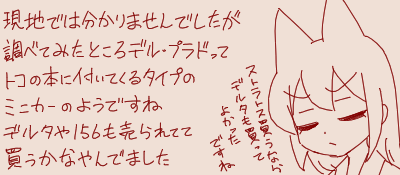 現地では分かりませんでしたが
調べてみたところデル・プラドって
トコの本に付いてくるタイプの
ミニカーのようですね
デルタや156も売られてて
買うかなやんでました
ストラトス買うなら
デルタも買って
よかった
ですね